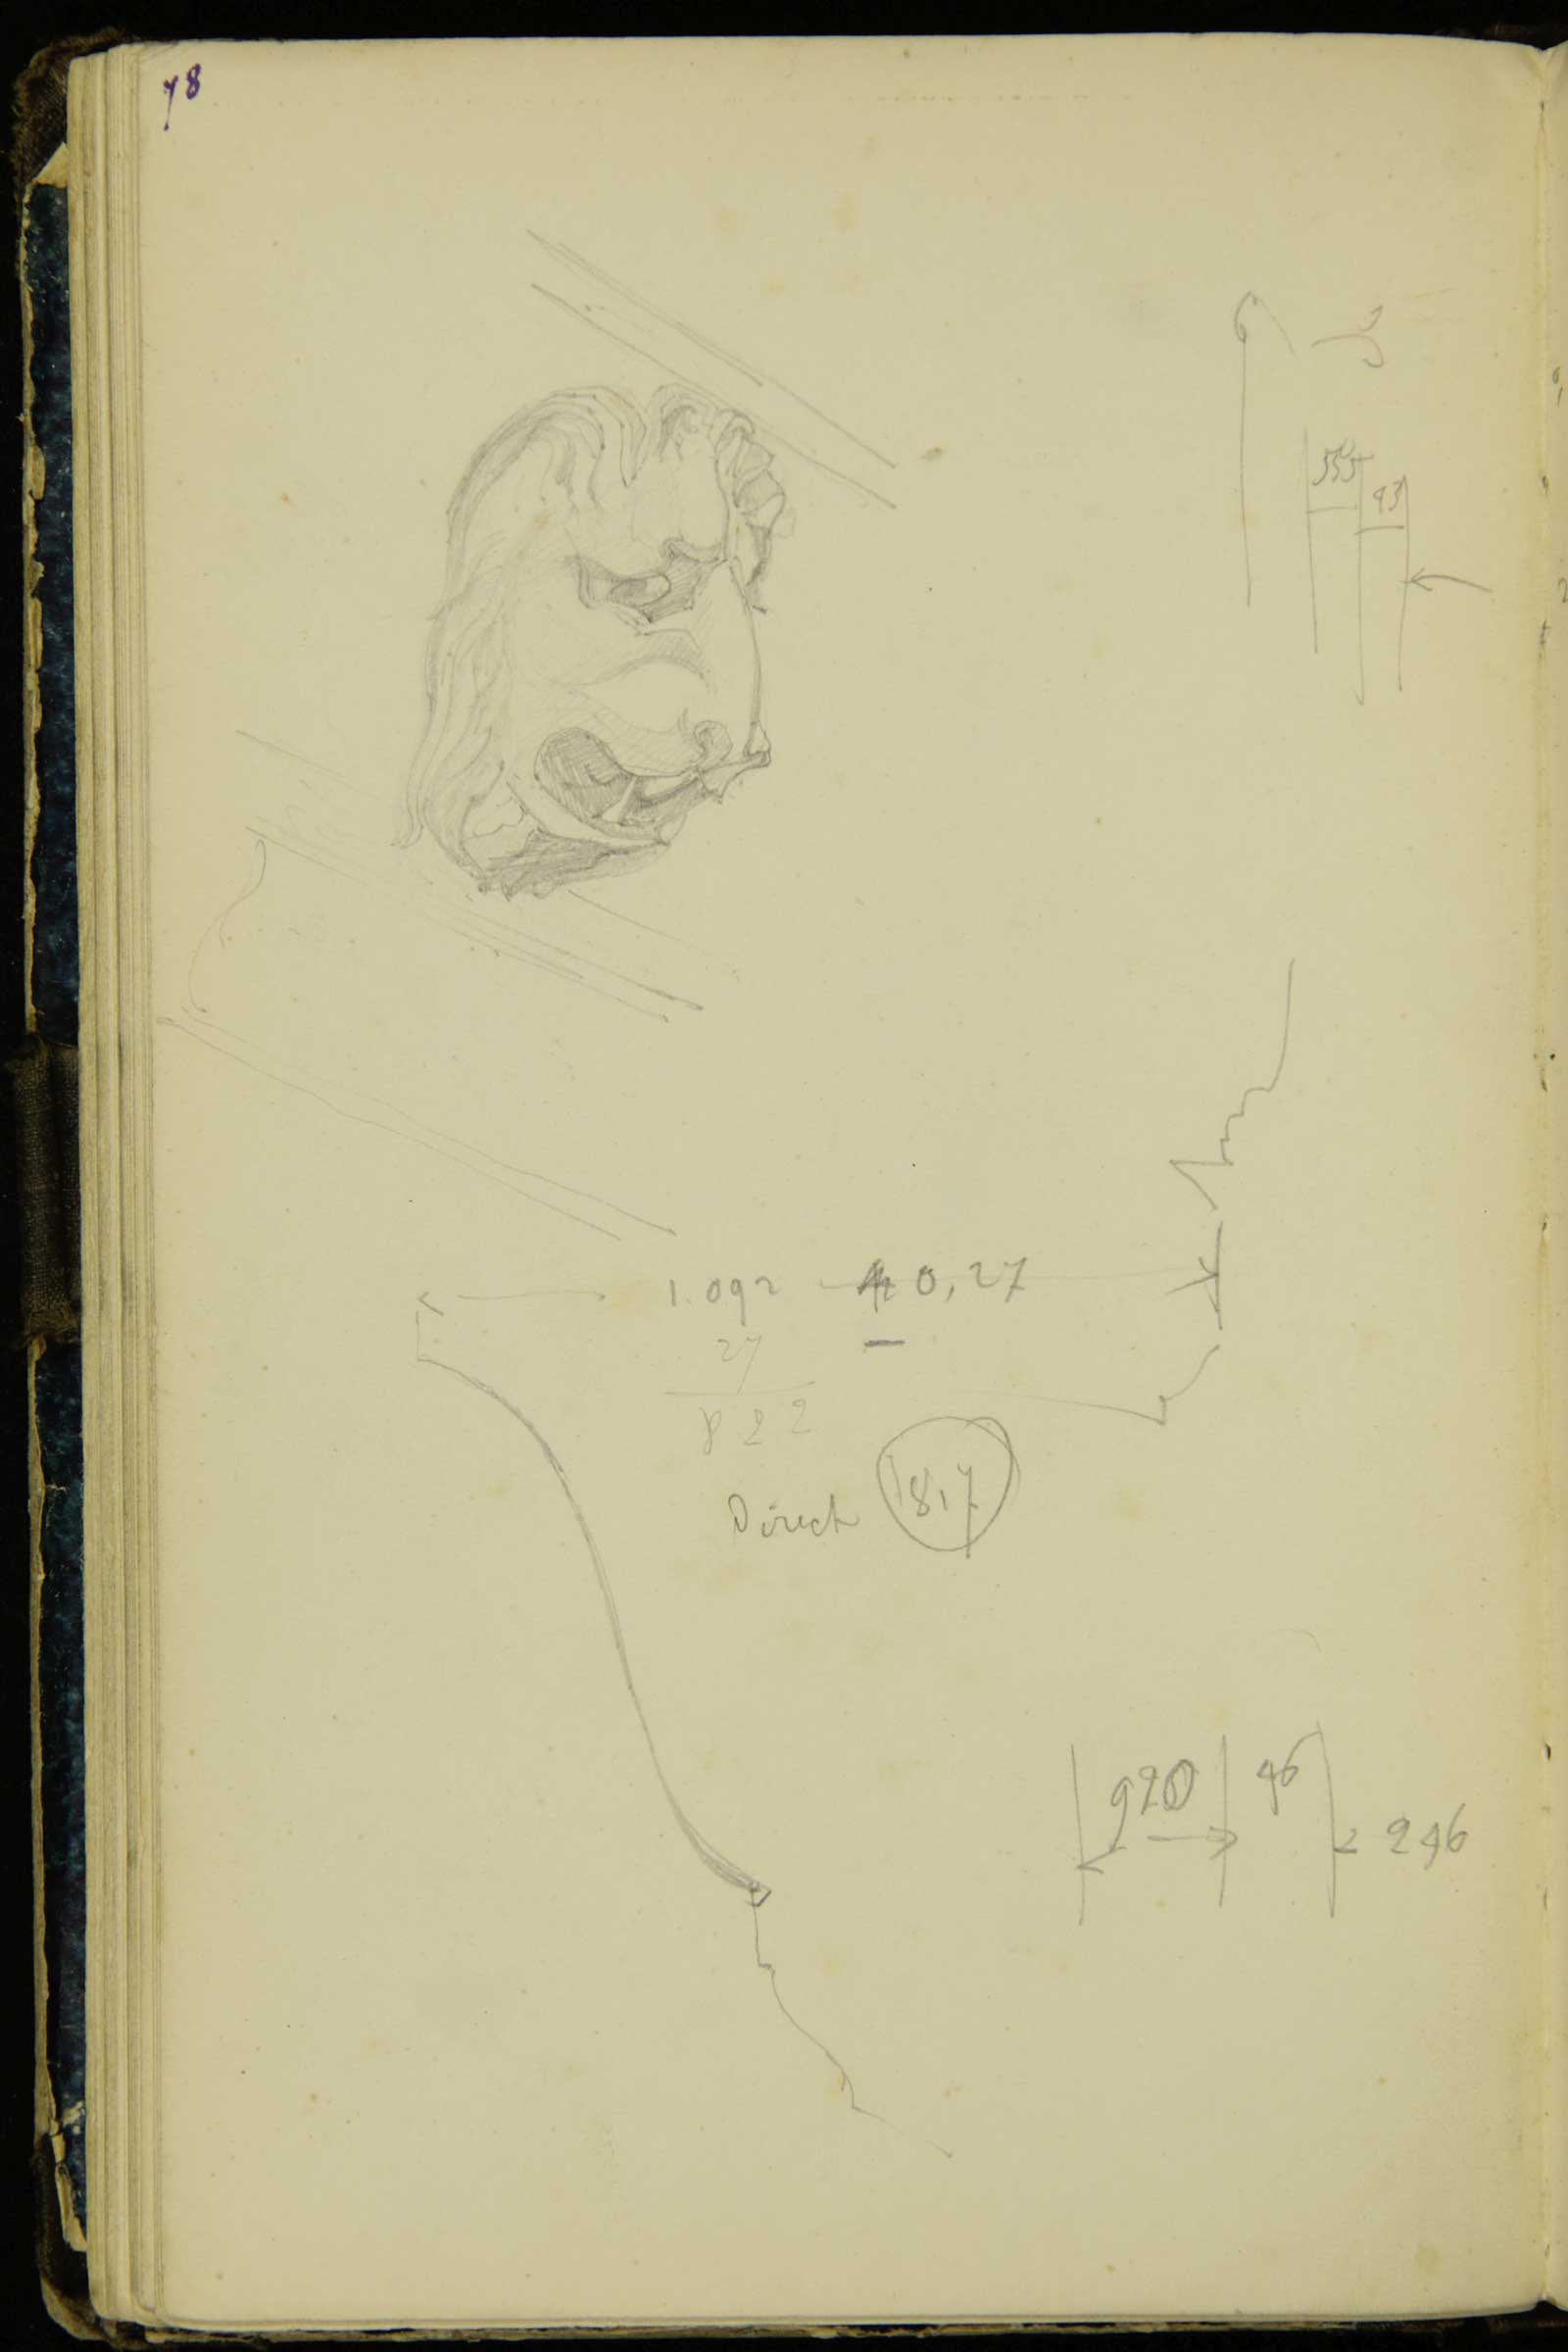 78
555
43
1.092 0,27
27
822
Direct 817
920 46
246